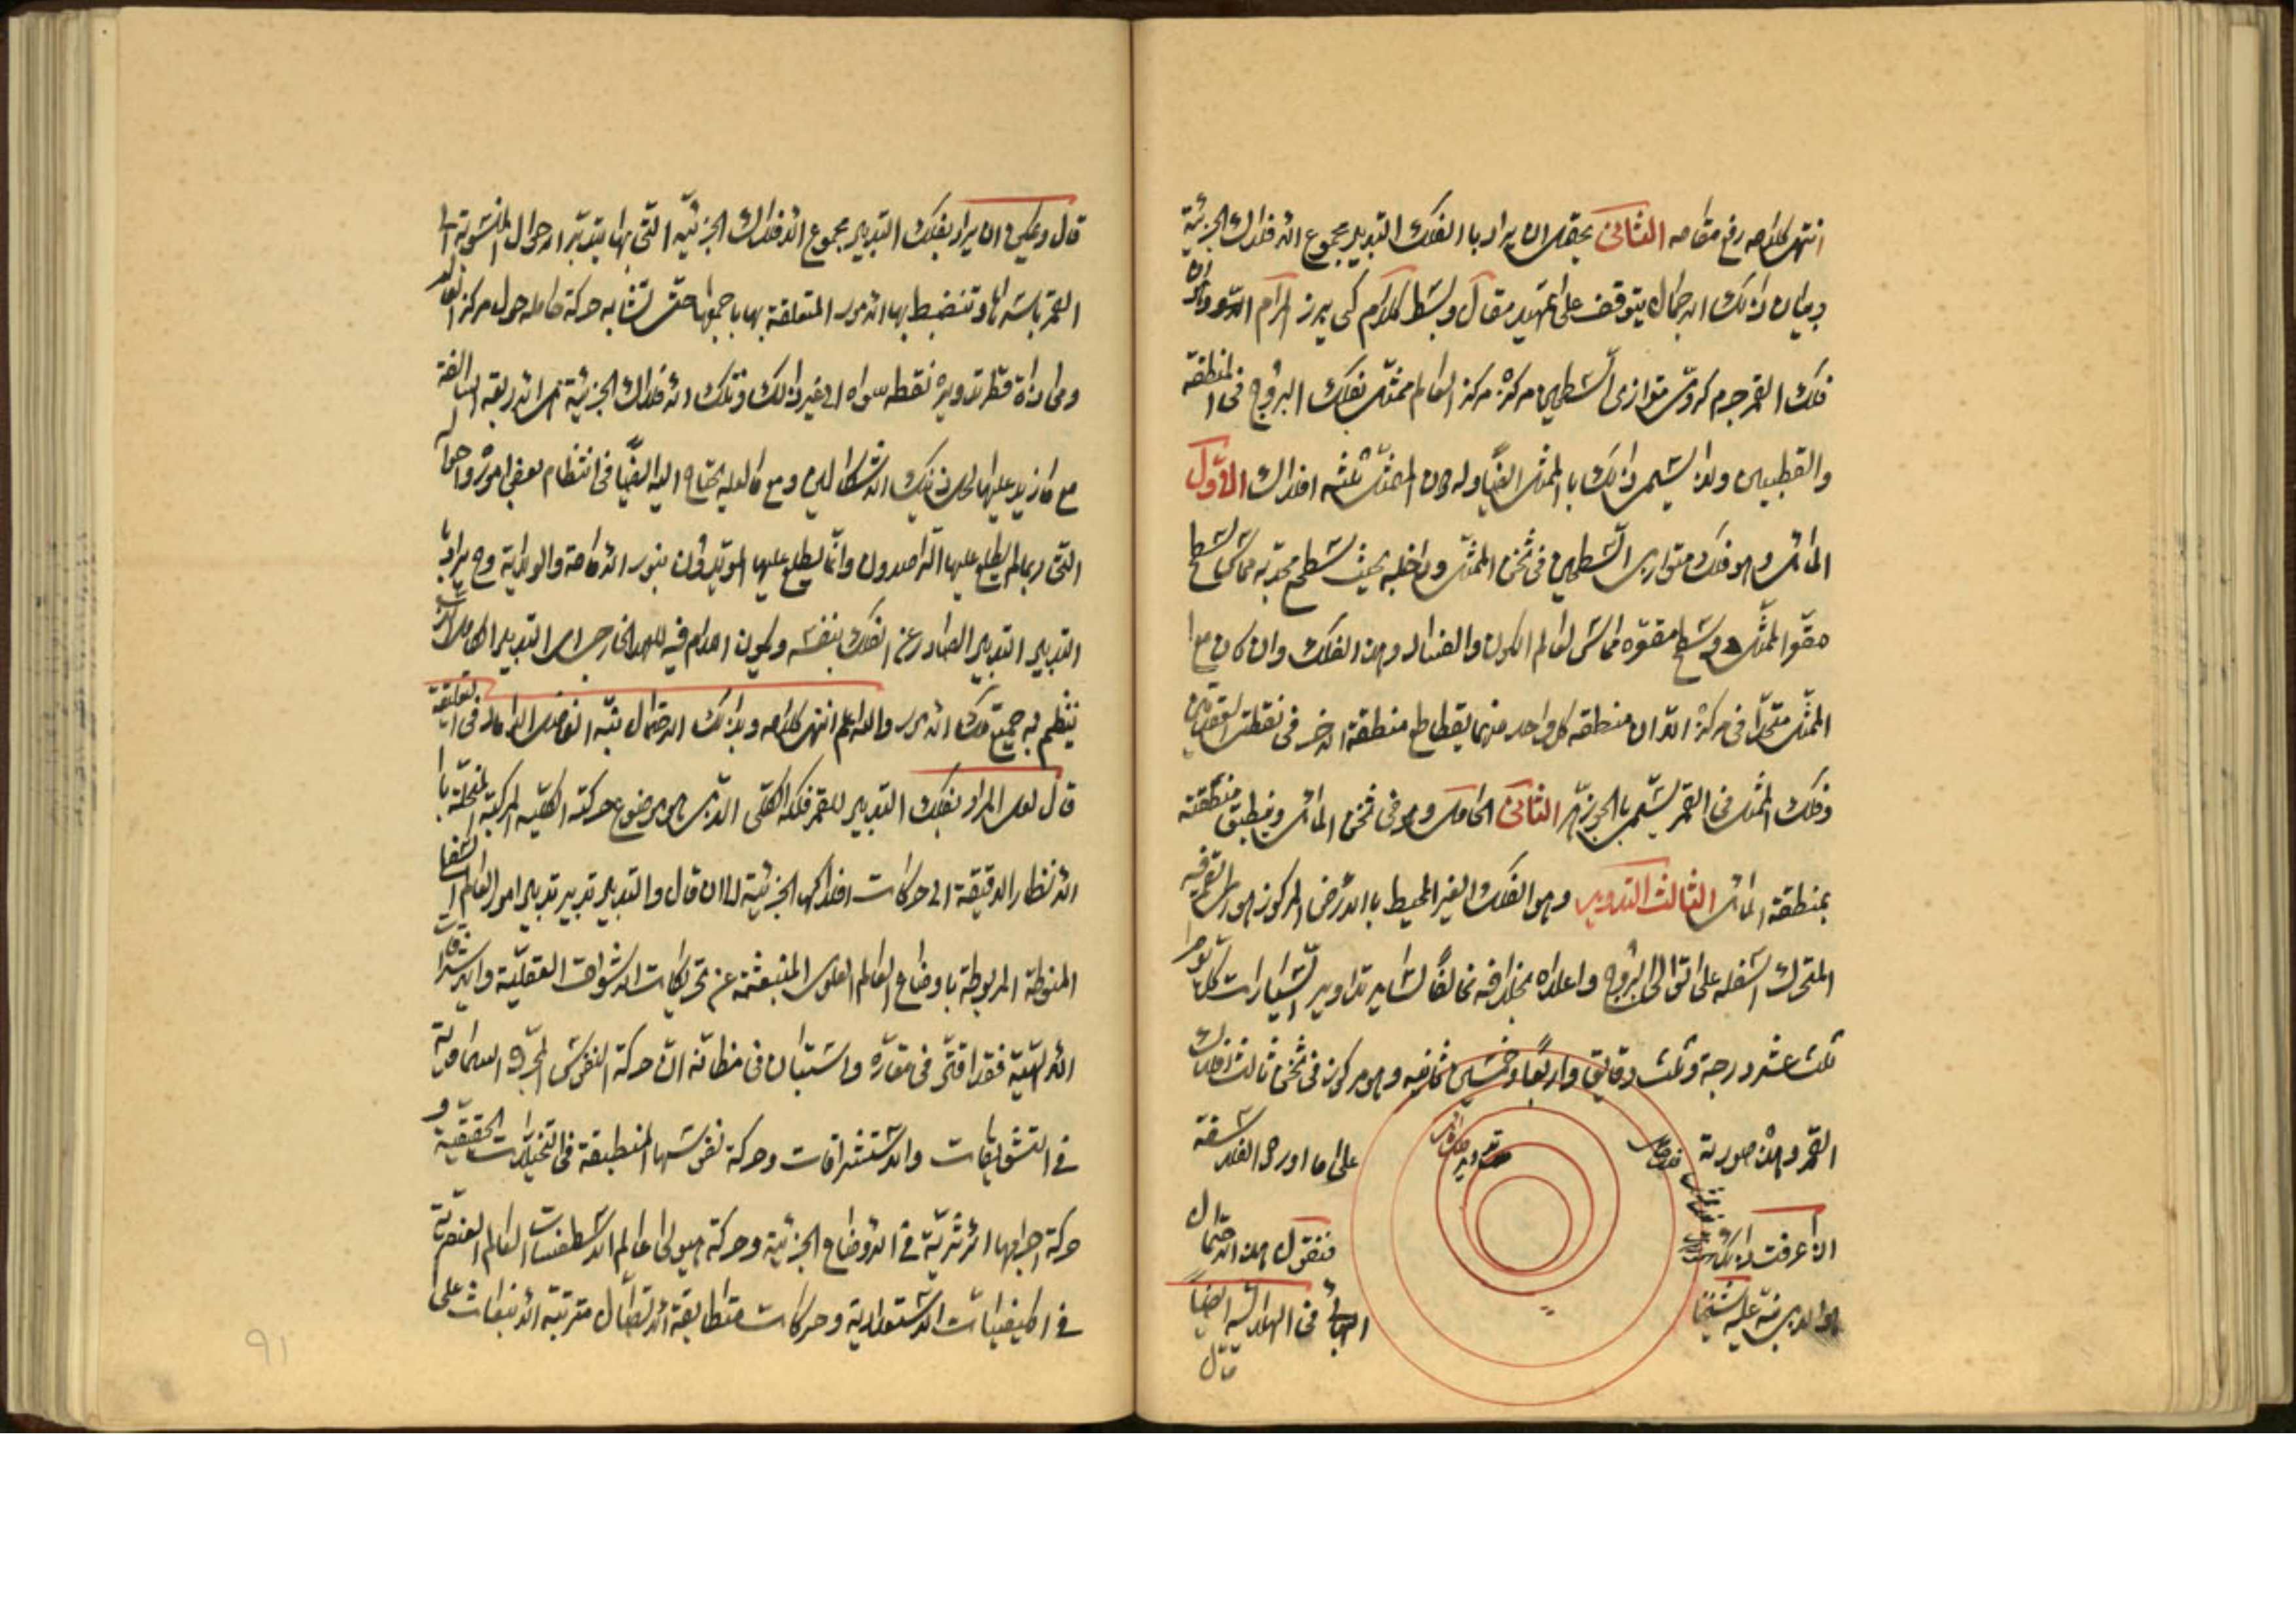 انتهى كلامه رفع مقامه الثانى يحتمل ان يراد بالفلك التدبير مجموع الافلاك الجزئية
وبيان ذلك الاجمال يتوقف على تمهيد مقال وبسط كلام كى يبرز المرام
فلك القمر جرم كروى متوازى السطحين مركزه مركز العالم ممثل بفلك البروج فى المنطقة
والقطبين ولذا يسمى ذلك بالممثل ايضا وله دون الممثل ثلثه افلاك الاول
المائل وهو فلك متوازى السطحين فى ثخن الممثل وداخله بحيث سطح محدبه مماس لسطح
مقعر الممثل وسطح مقعره مماس لعالم الكون والفساد وهذا الفلك وان كان مع
الممثل متحدا فى مركزه الا ان منطقه كل واحد منهما يقاطع منطقة الاخر فى نقطتى العقدتين
وفلك الممثل فى القمر يسمى بالجوزهر الثانى الحامل وهو فى ثخن المائل وينطبق منطقته
بمنطقة المائل الثالث التدوير وهو الفلك الغير المحيط بالارض المركوز هو
المتحرك اسفله على توالى البروج واعلاه بخلافه مخالفا لساير تداوير السيارات كل يوم
ثلث عشر درجة وثلث دقايق واربعا وخمسين ثانيه وهو مركوز فى ثخن ثالث افلاك
القمر وهذه صورته
على ما اورده الفلاسفة
اذا عرفت ذلك
فنقول هذا الاحتمال
هو الذى نبه عليه شيخنا
البهائى فى الهلاليه ايضا
قال
قال ويمكن ان يراد بفلك التدبير مجموع الافلاك الجزئيه التى بها يتدبر الاحوال المنسوبة الى
القمر باسرها وتنضبط بها الامور المتعلقة بها باجمعها حتى تشابه حركة حامله حول مركز العالم
ومحاذاة قطر تدويره نقطه سواه الى غير ذلك وتلك الافلاك الجزئية هى الاربعة السالفة
مع ما زيد عليها لحل ذينك الاشكالين ومع ما لعله يحتاج اليه ايضا فى انتظام بعض اموره واحواله
التى ربما لم يطلع عليها الراصدون وانما يطلع عليها المويدون بنور الامامة والولاية وح يراد
التدبير التدبير الصادر عن الفلك بنفسه ويكون اللام فيه للعهد الخارجى اى التدبير الكامل الذى
ينتظم به جميع تلك الامور والله اعلم انتهى كلامه وبذلك الاحتمال نبه الفاضل الداماد فى التعليقة
قال لعل المراد بفلك التدبير للقمر فلكه الكلى الذى هو موضوع حركته الكليه المركبة المنحلة
الانظار الدقيقة الى حركات افلاكها الجزئية الى ان قال والتدبير تدبير تدبير امور العالم
المنوطة المربوطة باوضاع العالم العلوى المنبعثة عن تحريكات الاشواق العقلية والاشراقات
الالهية فقد اقتر فى مقاره واستبان فى مظانه ان حركة النفوس المجردة السماوية
فى التشوقات والاستشراقات وحركة نفوسها المنطبعة فى التخيلات الحقيقية و
حركة اجرامها الاثيرية فى الاوضاع الجزئية وحركة هيولى عالم الاسطقسات العالم العنصرية
فى الكيفيات الاستعدادية وحركات متطابقة الاتصال مترتبة الانبعاث على
٩١